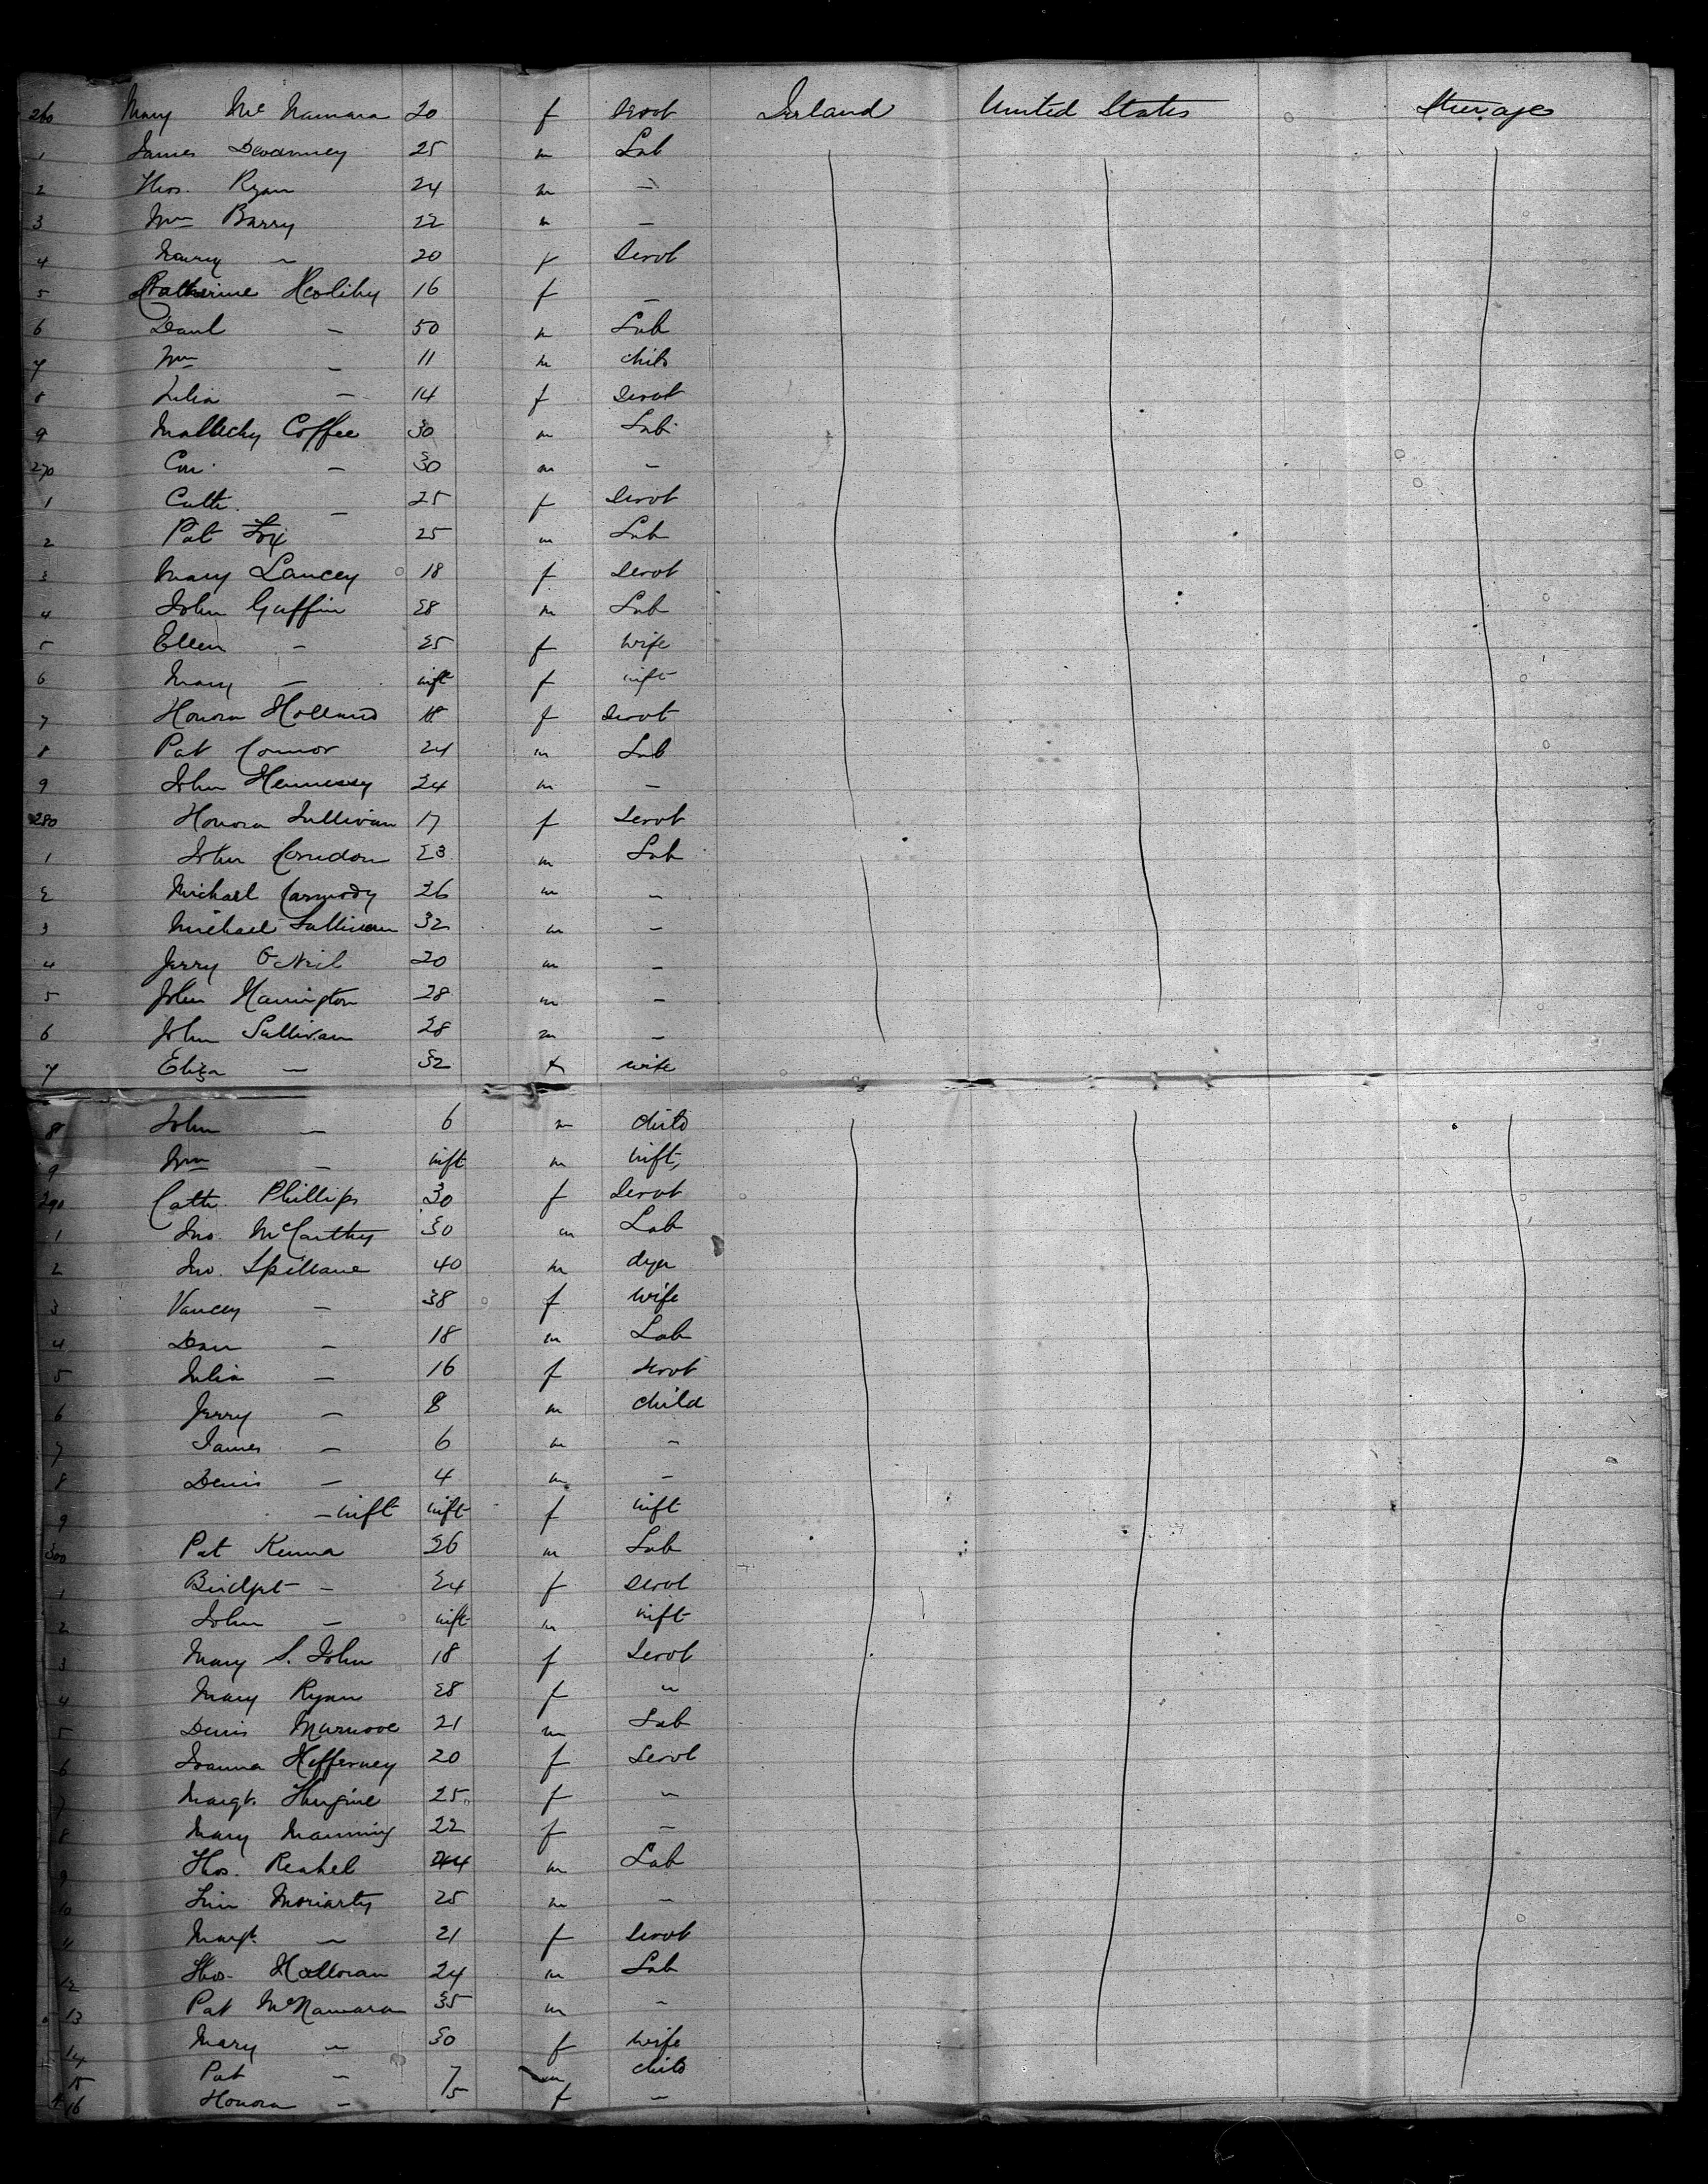 260 Mary McNamara 20 f Servt Ireland United States Steerage
1 James 25 m Lab
2 Thos. Ryan 24 m —
3 Wm Barry 22 m —
4 — 20 f Servt
5 Catherine Heolihy 16 f —
6 Danl — 50 m Lab
7 Wm — 11 m child
8 Julia — 14 f Servt
9 Mallichy Coffee 30 m Lab
270 Con. — 30 m —
1 Cath. — 25 f Servt
2 Pat Foy 25 m Lab
3 Mary Lancey 18 f Servt
4 John Guffin 28 m Lab
5 Ellen — 25 f wife
6 Mary — inft f inft
7 Honora Holland 18 f Servt
8 Pat Connor 24 m Lab
9 John Hennessy 24 m —
280 Honora Sullivan 17 f Servt
1 John Corridon 23 m Lab
2 Michael Carmody 26 m —
3 Michael Sullivan 32 m —
4 Jerry O'Neil 20 m —
5 John Harrington 28 m —
6 John Sullivan 28 m —
7 Eliza — 32 f wife
8 John — 6 m child
9 Wm — inft m inft,
290 Cath. Phillips 30 f Servt
1 Jno. McCarthy 30 m Lab
2 Jno. Spillane 40 m dyer
3 — 38 f wife
4 Dan — 18 m Lab
5 Julia — 16 f Servt
6 Jerry — 8 m child
7 James — 6 m —
8 Denis — 4 m —
9 — inft inft f inft
300 Pat Kenna 26 m Lab
1 Bridget — 24 f Servt
2 John — inft m inft
3 Mary S. John 18 f Servt
4 Mary Ryan 28 f —
5 Denis 21 m Lab
6 Joanna Hefferney 20 f Servt
7 Margt. 25 f —
8 Mary Manning 22 f —
9 Thos. Reahel 44 m Lab
10 Moriarty 25 m —
11 Margt. — 21 f Servt
12 Thos. Halloran 24 m Lab
13 Pat McNamara 35 m —
14 Mary — 30 f wife
15 Pat — 7 m child
16 Honora — 5 f —